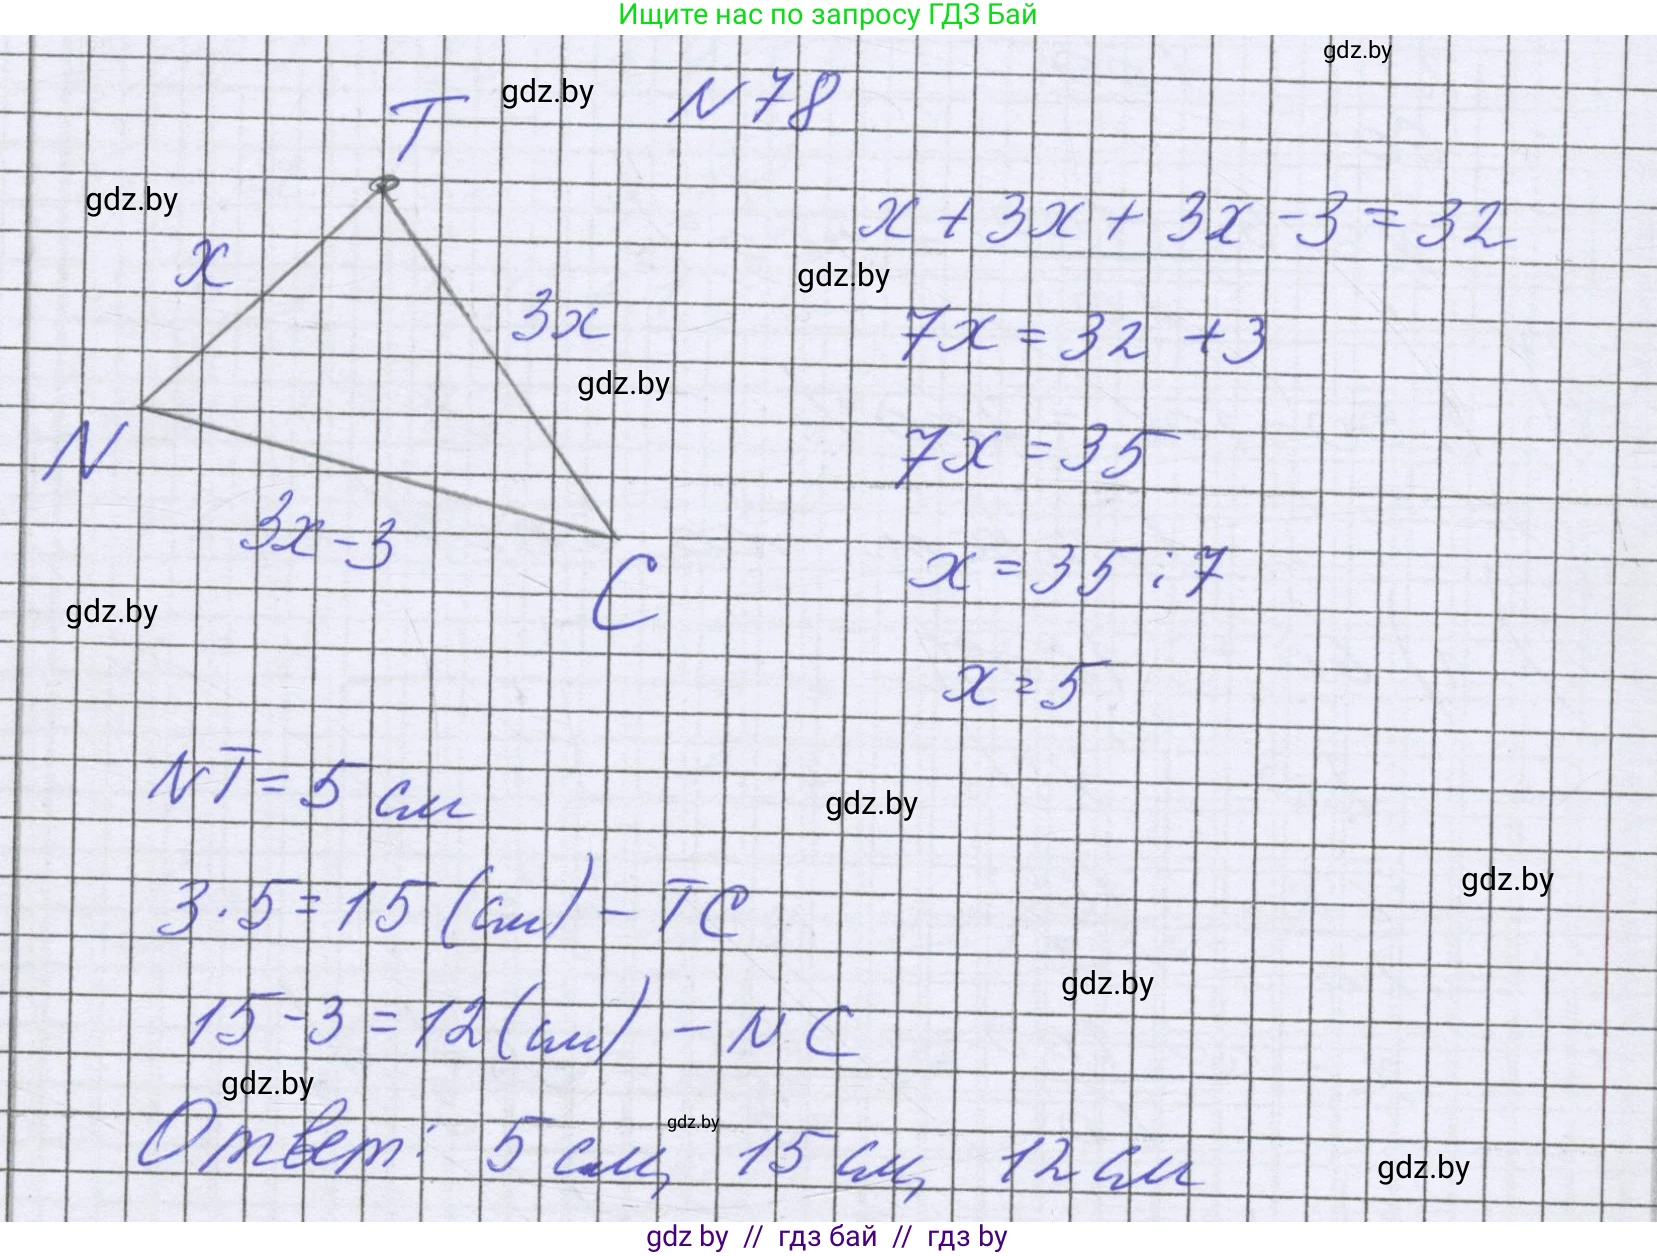 Ищите нас по запросу ГДЗ Бай
gdz.by
gdz.by
T
N 78
gdz.by
x
x + 3x + 3x - 3 = 32
gdz.by
3x
7x = 32 + 3
gdz.by
N
7x = 35
3x - 3
C
x = 35 : 7
gdz.by
x = 5
NT = 5 см
gdz.by
3 · 5 = 15 (см) - TC
gdz.by
gdz.by
15 - 3 = 12 (см) - NC
gdz.by
gdz.by
Ответ: 5 см, 15 см, 12 см
gdz.by
gdz by // гдз бай // гдз by